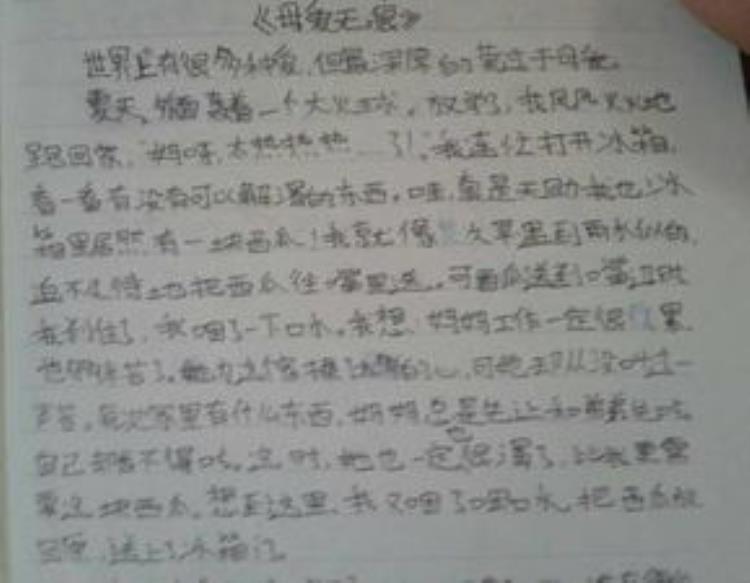 《母爱无限》
世界上有很多种爱,但最深厚的莫过于母爱。
夏天,外面烹着一个大火球。放学了,我风风火火地
跑回家,"妈呀,太热热热……了!"我连忙打开冰箱,
看一看有没有可以解渴的东西。哇,真是天助我也!冰
箱里居然有一块西瓜!我就像久旱遇到雨水似的,
迫不及待地把西瓜往嘴里送。可西瓜送到口嘴边时
我刹住了,我咽了一下口水。我想:妈妈工作一定很累,
也够辛苦了。她为这个家操,可她却从没叫过一
声苦,每次家里有什么东西,妈妈总是先让和弟弟先吃,
自己却舍不得吃。这时,她也一定也很渴了,比我更需
要这块西瓜。想到这里,我又咽了口水,把西瓜放
回,送上了冰箱门。